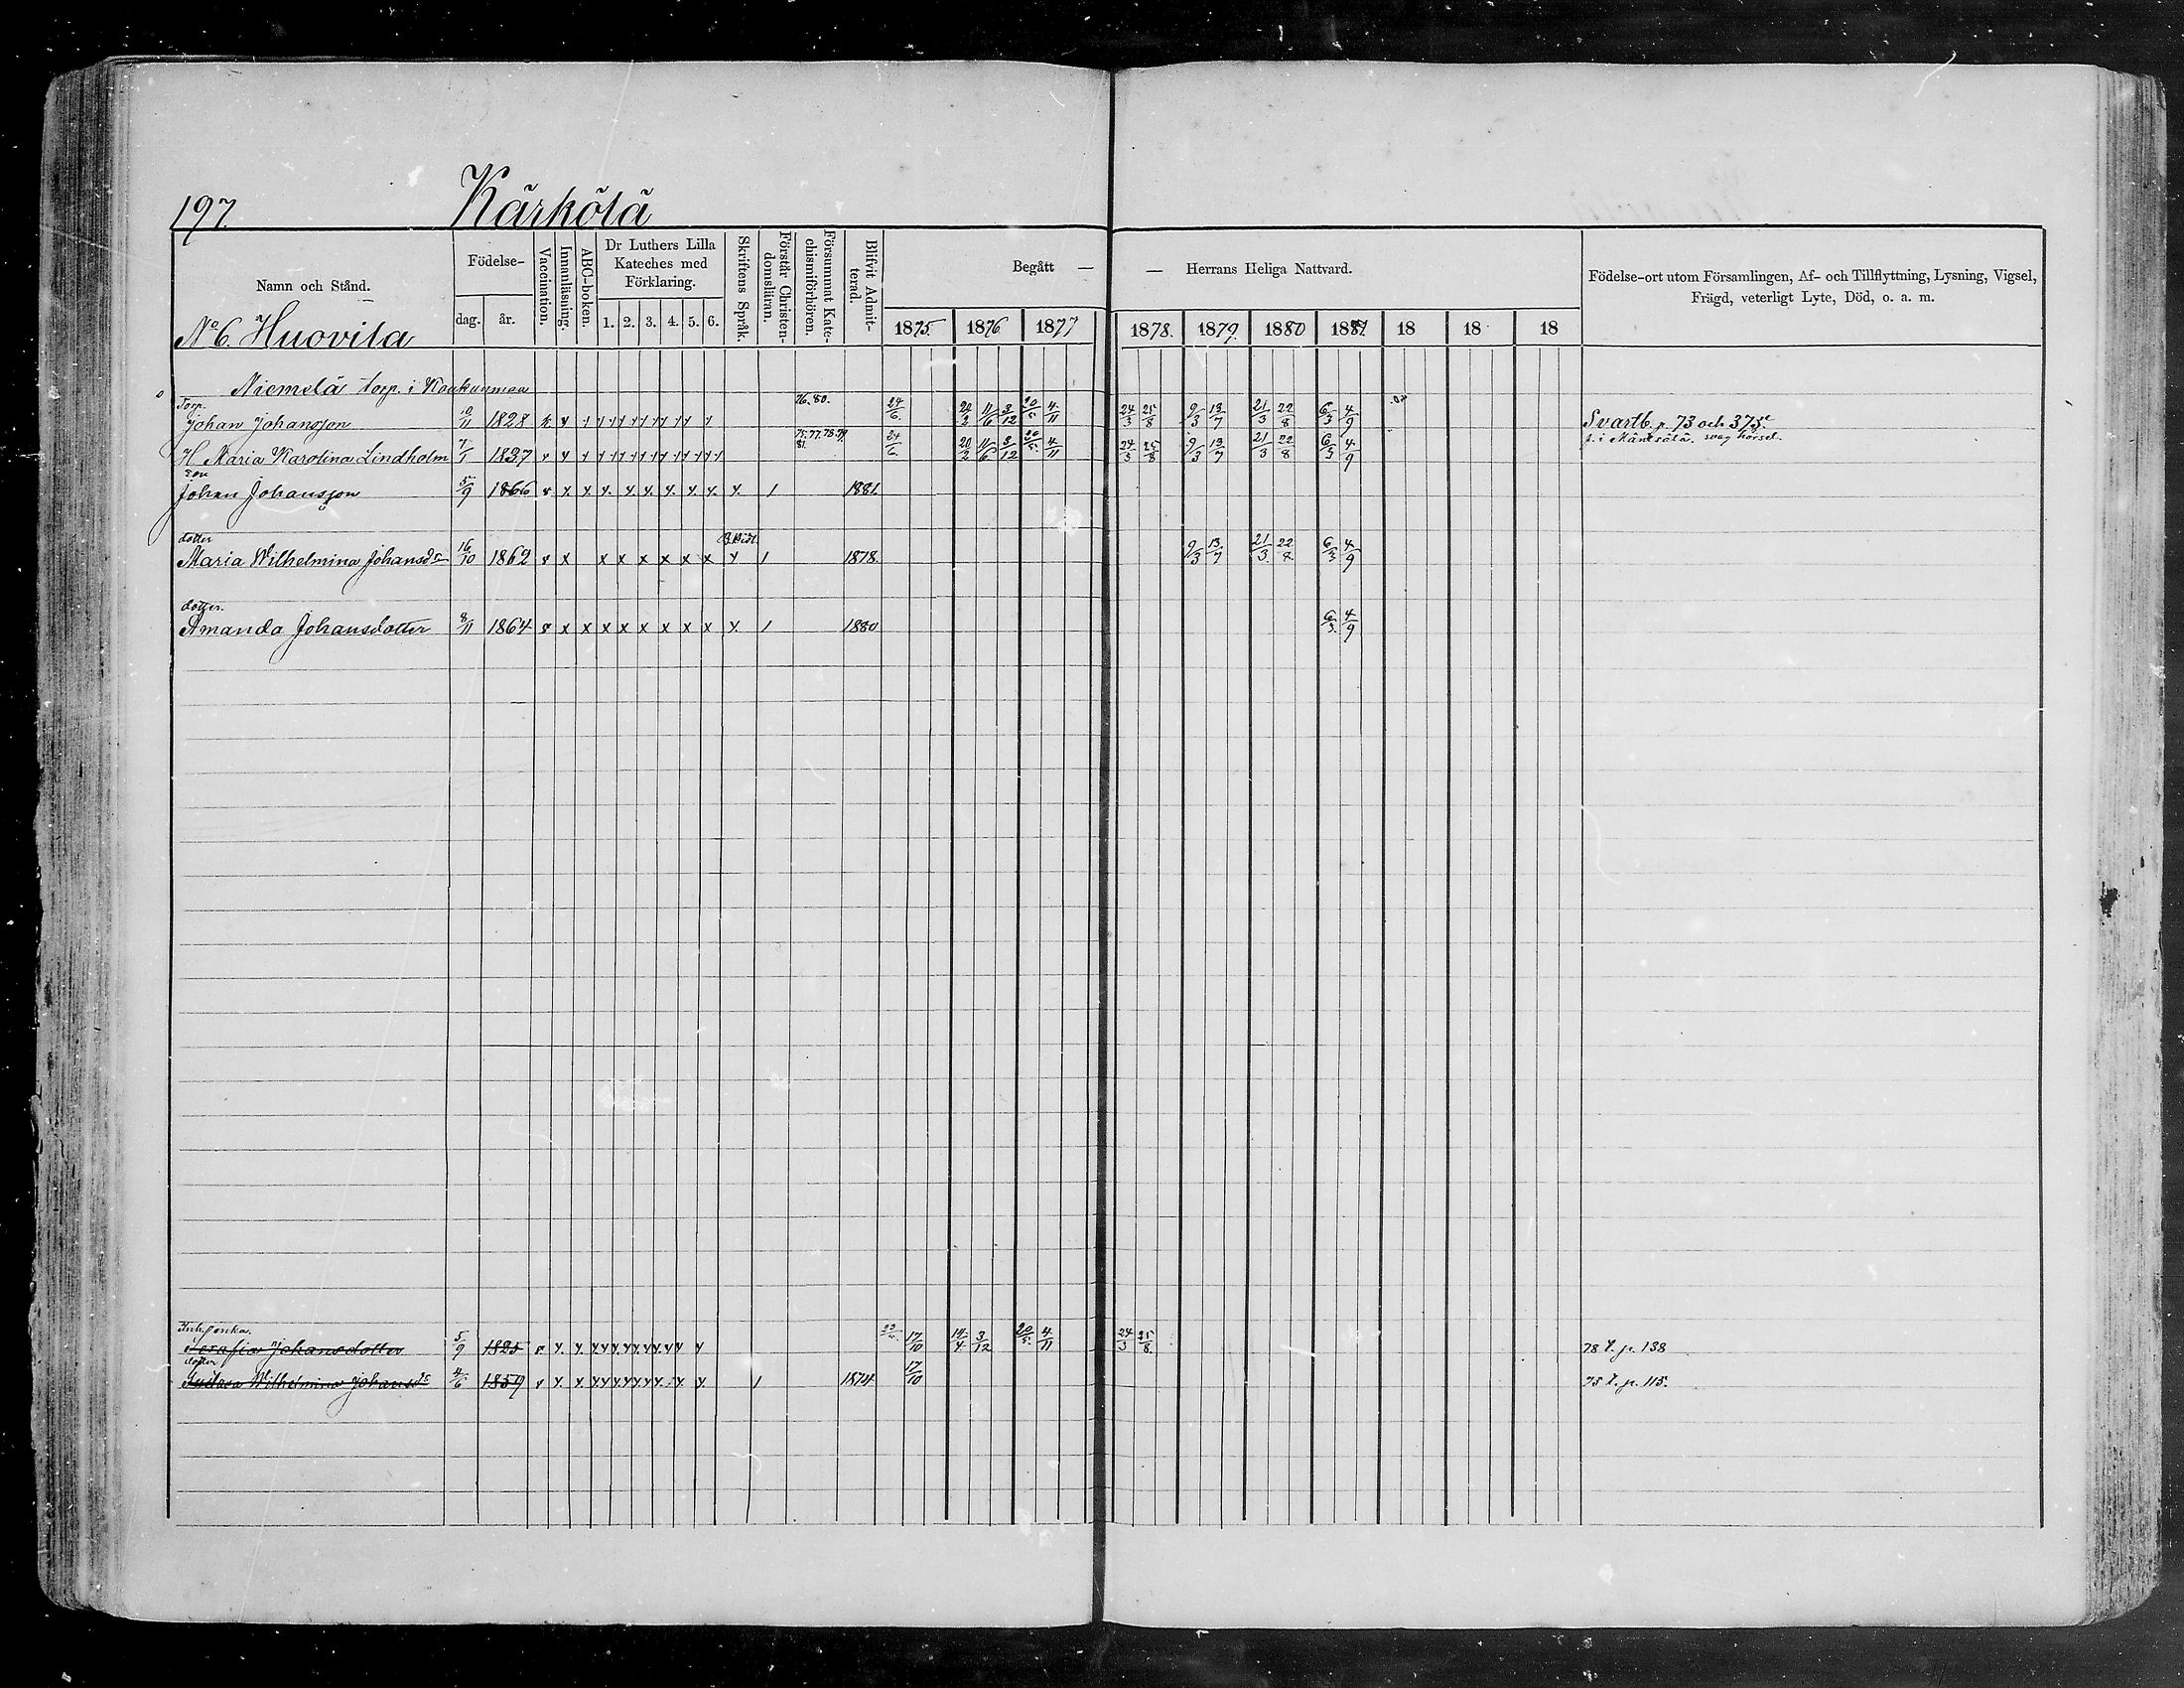 197. Kärkölä
Namn och Stånd.
Födelse-
dag. år.
Vaccination.
Innanläsning.
ABC-boken.
Dr Luthers Lilla
Kateches med
Förklaring.
1. 2. 3. 4. 5. 6.
Skriftens Språk.
Förstår Christen-
domsläran.
Försummat Kate-
chismiförhören.
Blifvit Admit-
terad.
Begått — — Herrans Heliga Nattvard.
1875 1876 1877 1878. 1879. 1880 1881. 18 18 18
Födelse-ort utom Församlingen, Af- och Tillflyttning, Lysning, Vigsel,
Frägd, veterligt Lyte, Död, o. a. m.
No 6. Huovila
Niemelä torp. i Koukunmaa
Torp. 76. 80.
Johan Johansson 10/11 1828 24/6. 20/2 11/6 3/12 20/5 4/11 24/3 25/8 9/3 13/7 21/3 22/8 6/3 4/9 Svartb. p. 73 och 373.
75. 77. 78. 79. f. i Mäntsälä. svag hörsel.
81.
H. Maria Karolina Lindholm 7/1 1837 v 24/6. 20/2 11/6 3/12 20/5. 4/11 24/3 25/8 9/3 13/7 21/3 22/8 6/3 4/9
son
Johan Johansson 5/9 1866 v x. x x. x. x. x. x. x. x. 1 1881.
dotter
Maria Wilhelmina Johansdr 16/10 1862 v x x x x x x x x 1 1878. 9/3 13/7 21/3. 22/8. 6/3 4/9
dotter.
Amanda Johansdotter 8/11 1864 v x x x x x x x x x. 1 1880 6/3. 4/9
Inh. enka.
Serafia Johansdotter 5/9 1825 v x. x. 17/10 14/4 3/12 20/5. 4/11 24/3 25/8. 78 t. p. 138
dotter
Wilhelmina Johansdr 4/6 1859 v x. x. 1 1874 17/10 75 t. p. 115.